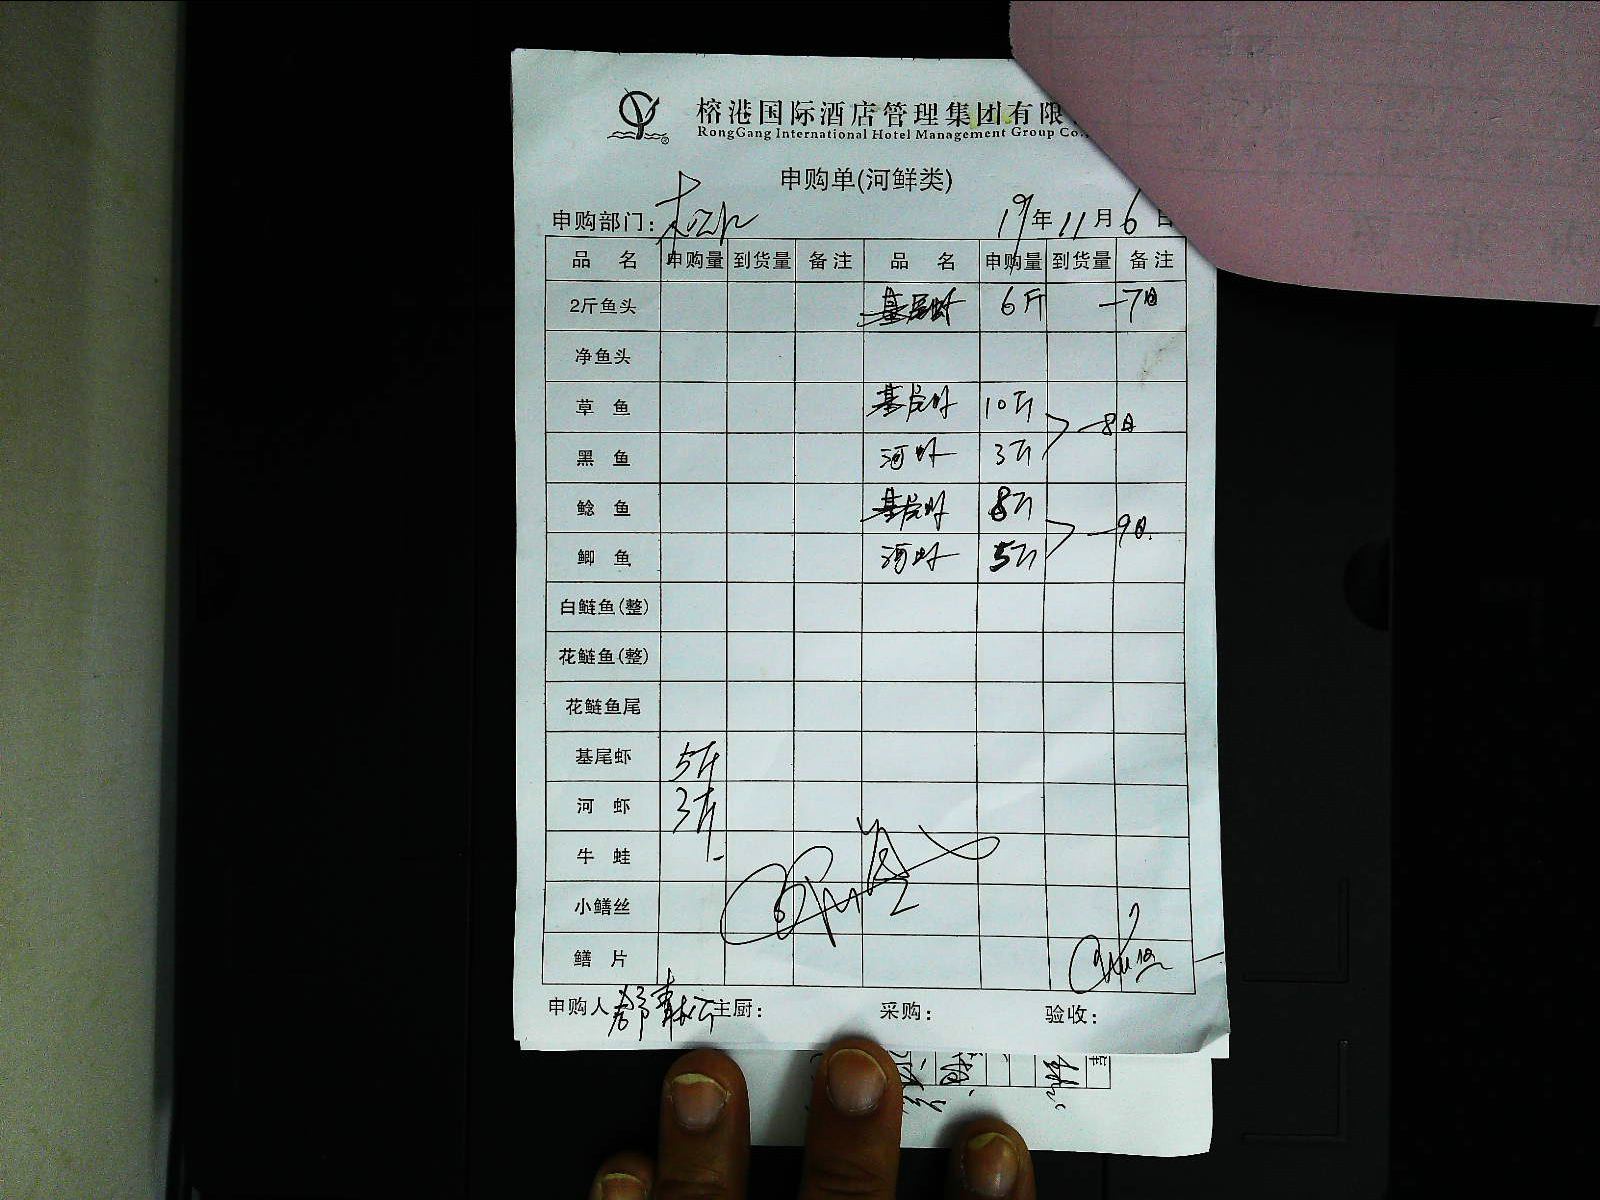 榕港国际酒店管理集团有限
RongGang International Hotel Management Group Co.,
申购单(河鲜类)
申购部门：
19年11月6日
品名 申购量 到货量 备注 品名 申购量 到货量 备注
2斤鱼头 基尾虾 6斤 —7日
净鱼头
草鱼 基尾虾 10斤
—8日
黑鱼 河虾 3斤
鲶鱼 基尾虾 8斤
—9日
鲫鱼 河虾 5斤
白鲢鱼(整)
花鲢鱼(整)
花鲢鱼尾
基尾虾 5斤
河虾 3斤
牛蛙
小鳝丝
鳝片
申购人 主厨： 采购： 验收：